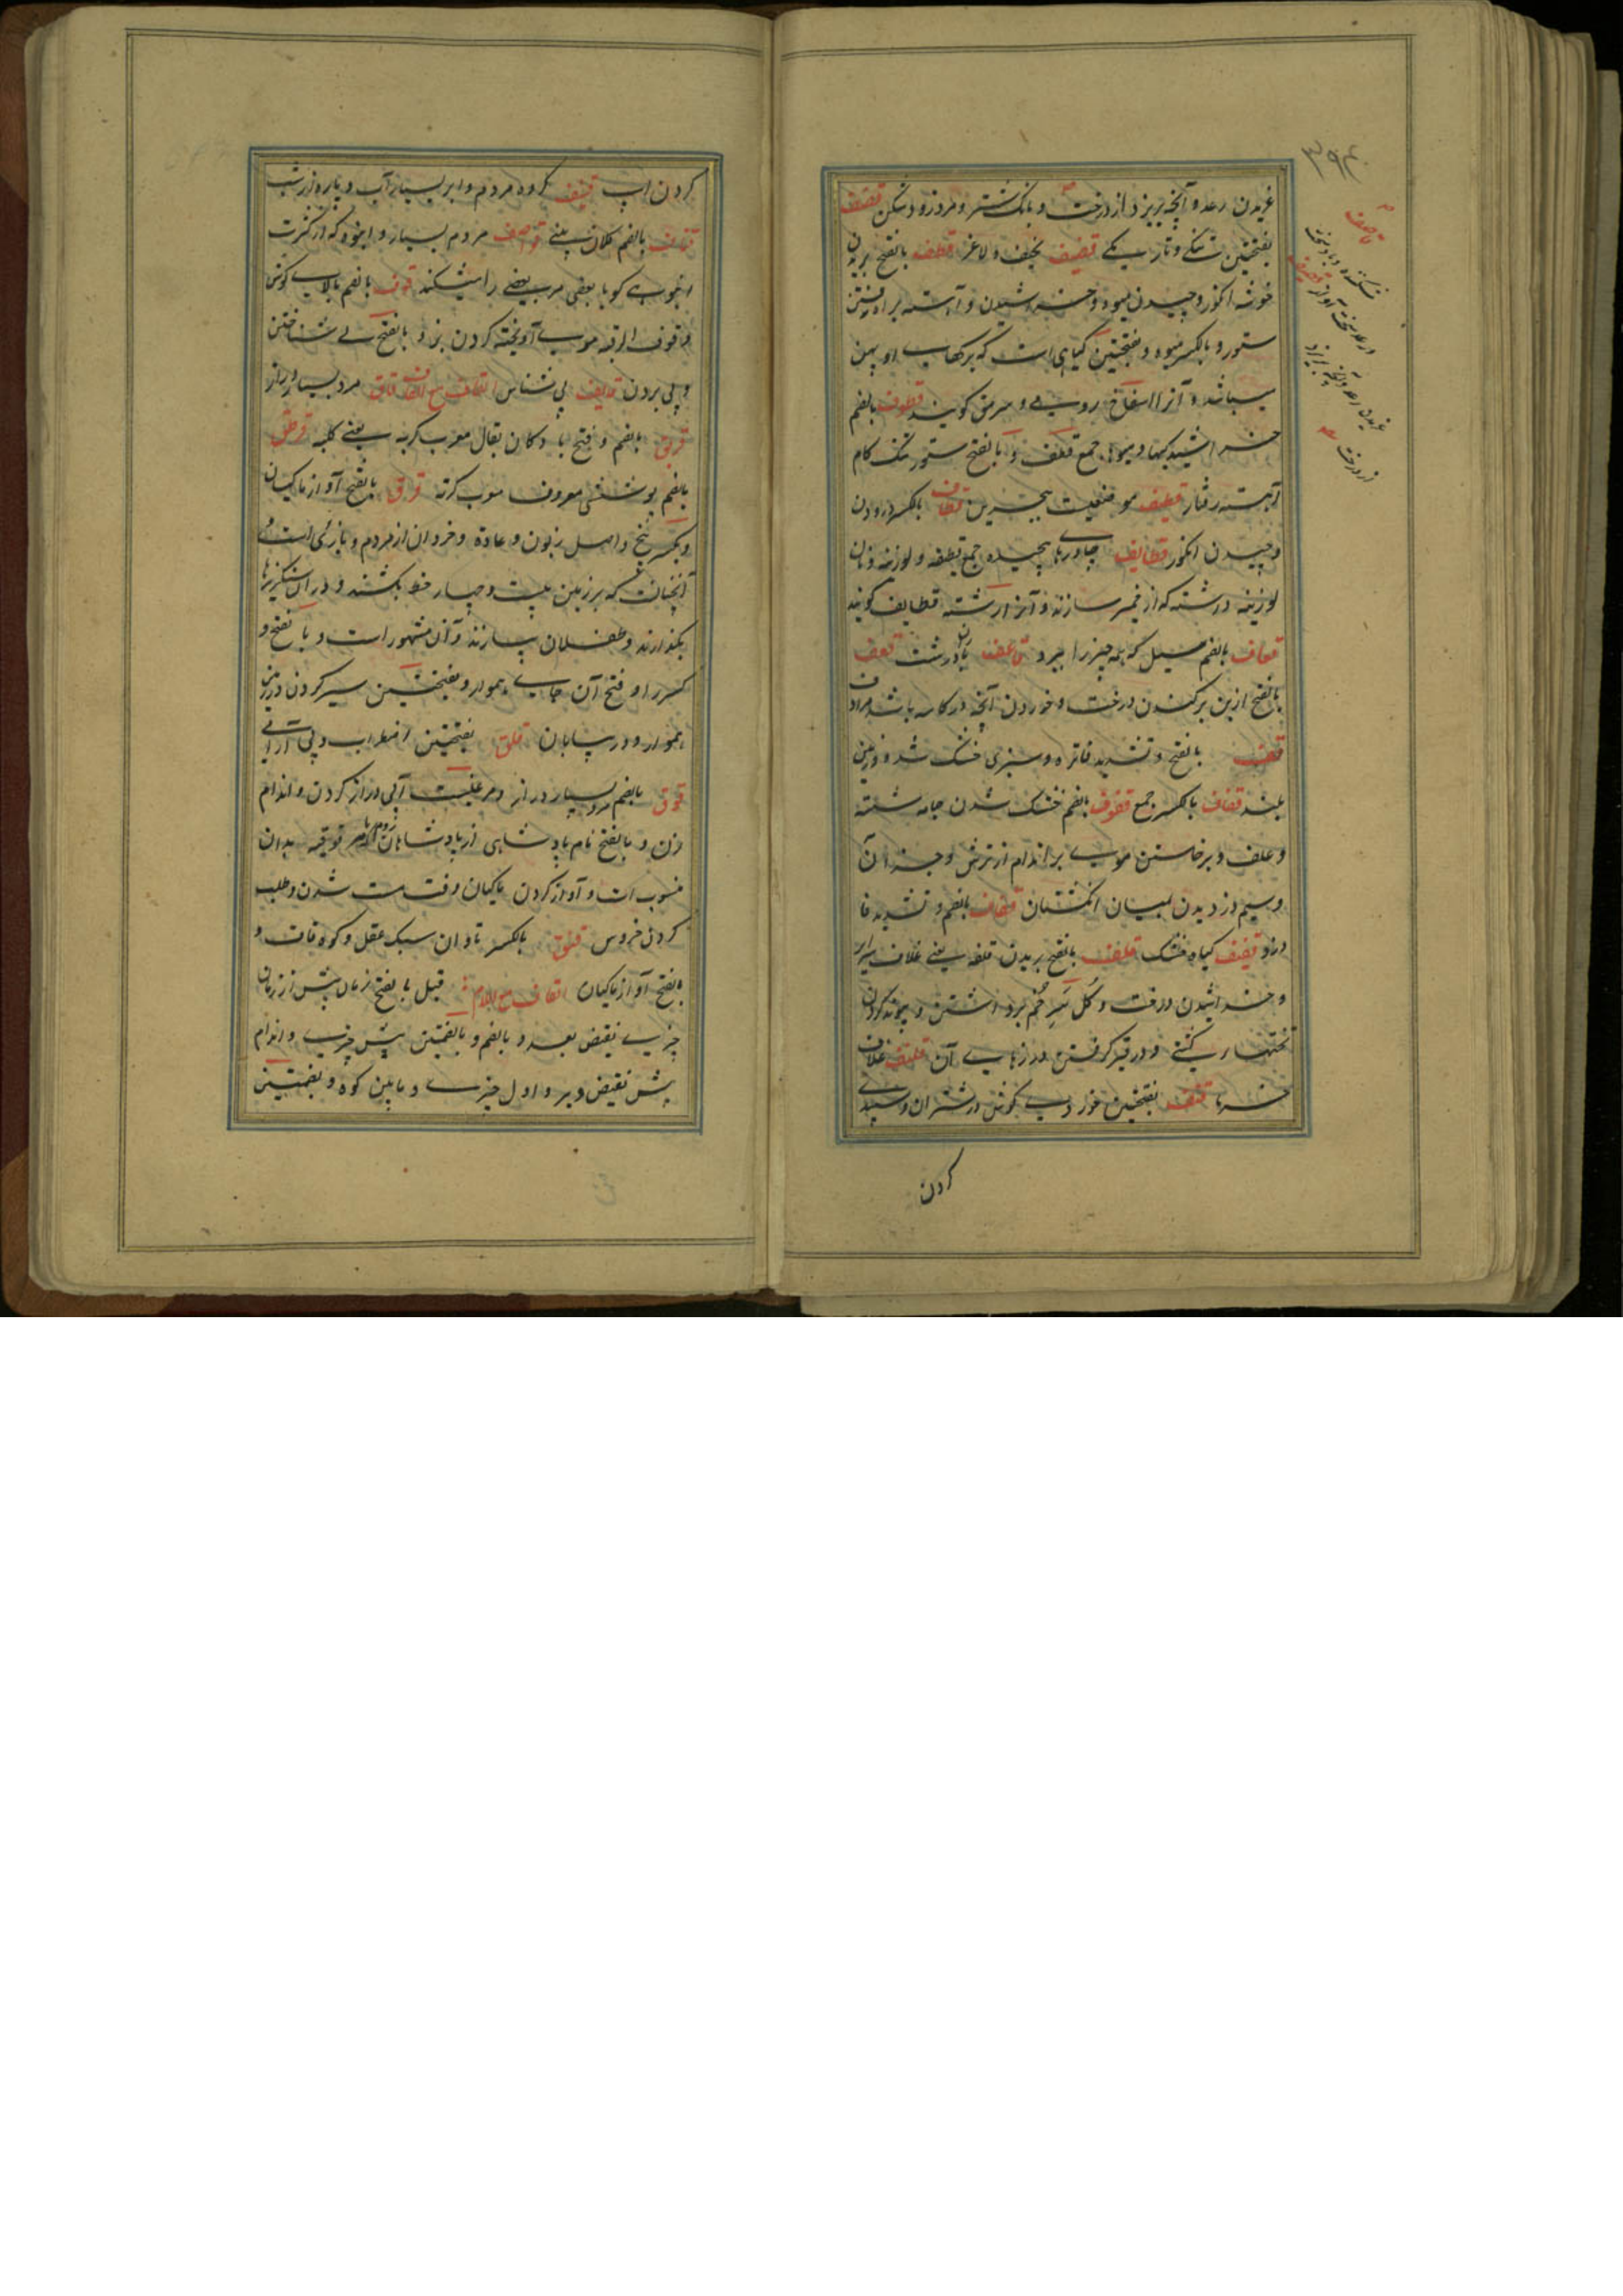 ۳۹۴
غریدن رعد و آنچه بریزد از درخت و بانگ شتر و مرد زود شکن قصف
بفتحتین تنگی و تاریکی قضیف نحیف و لاغر قطف بالفتح بریدن
خوشه انگور و چیدن میوه و خراشیدن و آهسته براه رفتن
ستور و بالکسر میوه و بفتحتین گیاهی است که برگهای او پهن
میباشد و آنرا اسفاخ رومی و سرمق گویند قطوف بالضم
خراشیدگیها و میوها جمع قطف و بالفتح ستور تنگ گام
آهسته رفتار قطیف موضعیست ببحرین قطاف بالکسر درودن
و چیدن انگور قطایف چادرهای پیچیده جمع قطیفه و لوزینه و نان
لوزینه و رشته که از خمیر سازند و آنرا رشته قطایف گویند
قعاف بالضم سیل که همه چیز را ببرد قاعف باران درشت قعف
بالفتح از بن برکندن درخت و خوردن آنچه در کاسه باشد
قف بالفتح و تشدید فا تره و سبزی خشک شده و زمین
بلند قفاف بالکسر جمع قفوف بالضم خشک شدن جامه شسته
و علف و برخاستن موی بر اندام از ترس و جز آن
و سیم دزدیدن بمیان انگشتان قفاف بالفتح و تشدید فا
دزد قفیف گیاه خشک قلف بالفتح بریدن قلفه یعنی غلاف سر
و خراشیدن درخت و گل سر خم برداشتن و پیوند کردن
تختهای کشتی و در قیر گرفتن درزهای آن قلیف غلاف
خرما قنف بفتحتین خوردی گوش و شتران و سپیدی
کردن
قاصف
شکننده و باد سخت
قصیف
غریدن رعد
از درخت
کردن اسپ قنیف گروه مردم و ابر بسیار آب و پاره از شب
قناف بالضم کلان بینی قواصف مردم بسیار و انبوه که از کثرت
انبوهی گویا بعضی مر بعضی را میشکند قوف بالضم بالای گوش
و قوف الرقبه موی آویخته گردن بز و بالفتح پی شناختن
و پی بردن قایف پی شناس القاف مع القاف قاق مرد بسیار دراز
قربق بالضم و فتح با دکان بقال معرب کربه یعنی کلبه قرطق
بالضم پوششی معروف معرب کرته قرق بالفتح آواز ماکیان
و بکسر بیخ و اصل زبون و عادة و خردان از مردم و بازی است
آنچنانست که بر زمین بیست و چهار خط بکشند و در آن سنگریزها
بگذارند و طفلان ببازند و آن مشهور است و بالفتح و
کسر را و فتح آن جای هموار و بفتحتین سیر کردن در زمین
هموار و در بیابان قلق بفتحتین اضطراب و بی آرامی
قوق بالضم مرد بسیار دراز و مرغیست آبی دراز گردن و اندام
زن و بالفتح نام پادشاهی از پادشاهان روم که دنانیر قوقیه بدان
منسوب است و آواز کردن ماکیان وقت مست شدن و طلب
کردن خروس قیق بالکسر نادان سبک عقل و کوه قاف و
بالفتح آواز ماکیان القاف مع اللام قبل بالفتح زمان پیش از زمان
چیزی نقیض بعد و بالضم و بالضمتین پیش چیزی و اندام
پیش نقیض دبر و اول چیزی و پایین کوه و بضمتین